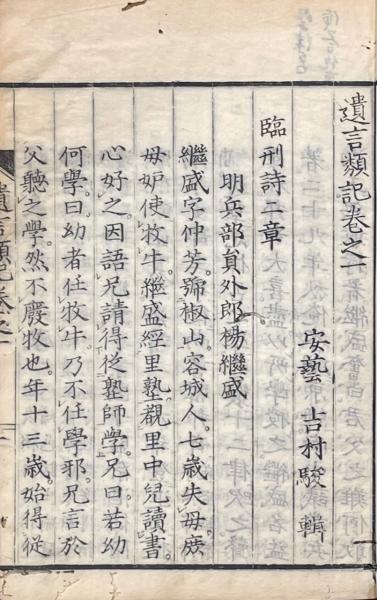 遺言類記卷之一
安藝 吉村駿 輯
臨刑詩二章
明兵部員外郎楊繼盛
繼盛字仲芳。號椒山。容城人。七歲失母。庶
母妒使牧牛。繼盛經里塾。覩里中兒讀書。
心好之。因語兄請得從塾師學。兄曰。若幼
何學。曰。幼者任牧牛。乃不任學邪。兄言於
父聽之學。然不廢牧也。年十三歲。始得從
遺言類記卷之一